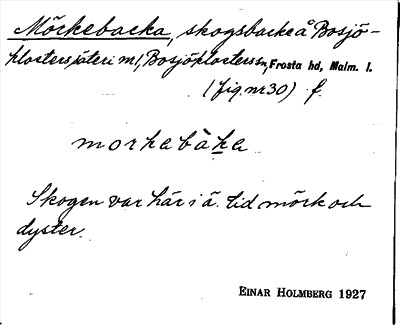 Mörkebacka, skogsbacke å Bosjö-
klosters säteri m/, Bosjöklosters sn, Frosta hd, Malm. l.
(fig. nr 30) f.
morkebàka
Skogen var här i ä. tid mörk och
dyster.
EINAR HOLMBERG 1927